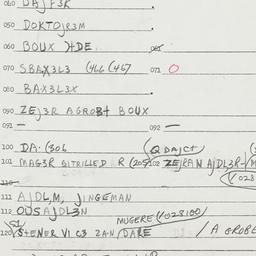 040 DAJF3K
050 DOKTOJR3M
060 BOUX HDE 065
070 SBAX3L3 (466 (467 071 O
080 BAX3L3X
090 ZEJ3R AGROBT BOUX
091 — 092 —
100 DA. (306 (QDAJCT
101 MAG3R BITRILLED R (205 102 ZEJRAN AJDL3R-
110 (1023
111 AJDL,M, JINGEMAN
112 OUSAJDL3N MUGERE (1023100)
120 STENER VI G3 ZAN/DARE / A GROBE